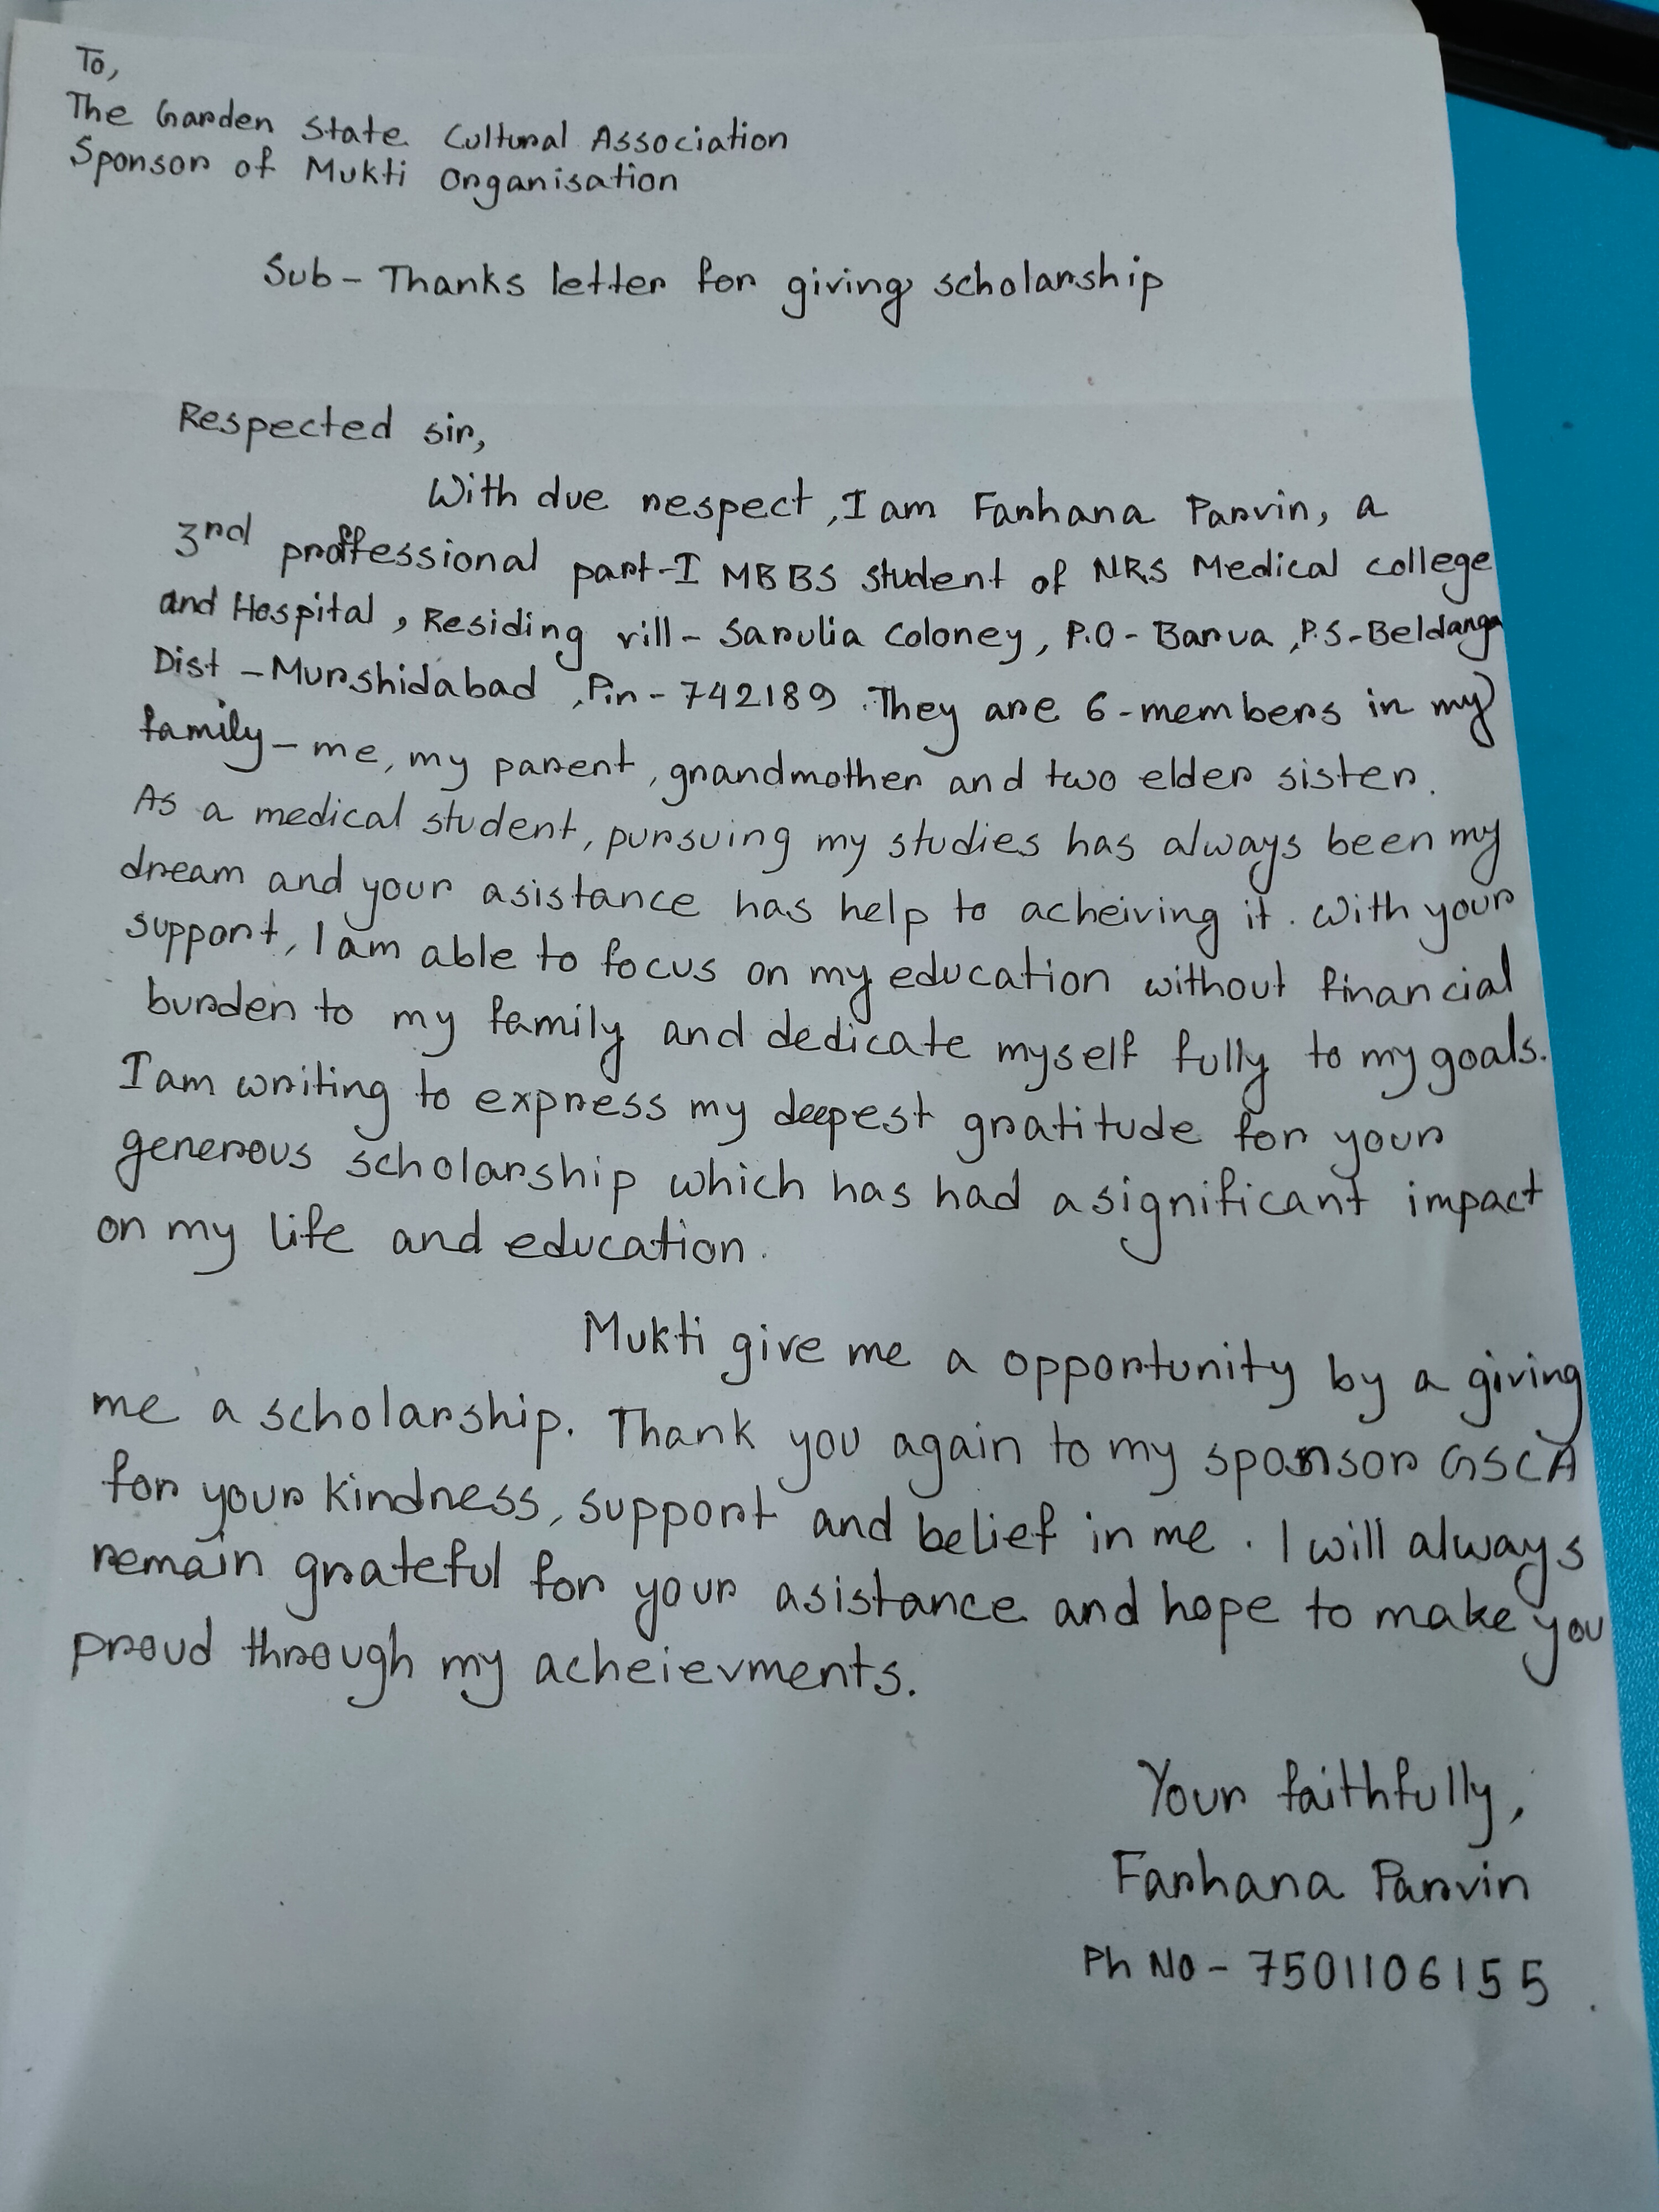 To,
The Garden State Cultural Association
Sponsor of Mukti Organisation
Sub - Thanks letter for giving scholarship
Respected sir,
With due respect, I am Farhana Parvin, a
3rd proffessional part-I MBBS student of NRS Medical college
and Hospital, Residing vill - Sarulia Coloney, P.O - Barua, P.S - Beldanga
Dist - Murshidabad, Pin - 742189. They are 6 - members in my
family - me, my parent, grandmother and two elder sister.
As a medical student, pursuing my studies has always been my
dream and your asistance has help to acheiving it. With your
support, I am able to focus on my education without financial
burden to my family and dedicate myself fully to my goals.
I am writing to express my deepest gratitude for your
generous scholarship which has had a significant impact
on my life and education.
Mukti give me a opportunity by a giving
me a scholarship. Thank you again to my sponsor GSCA
for your kindness, support and belief in me. I will always
remain grateful for your asistance and hope to make you
proud through my acheievments.
Your faithfully,
Farhana Parvin
Ph No - 7501106155